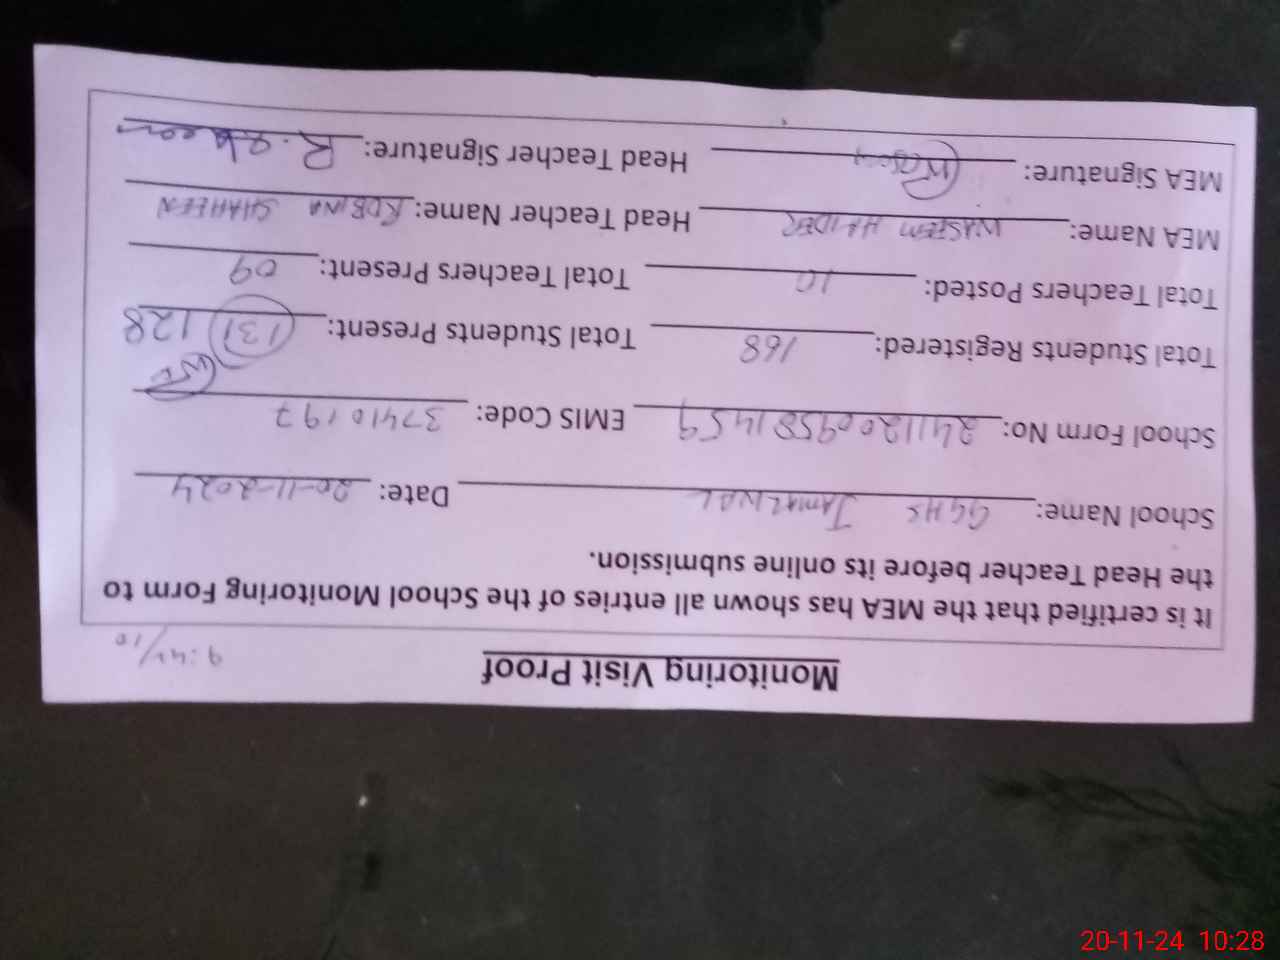 Monitoring Visit Proof
9:44/10
It is certified that the MEA has shown all entries of the School Monitoring Form to
the Head Teacher before its online submission.
School Name: GGHS JAMALWAL Date: 20-11-2024
School Form No: 241120095814 59 EMIS Code: 37410197
Total Students Registered: 168 Total Students Present: 131 128
Total Teachers Posted: 10 Total Teachers Present: 09
MEA Name: WASEEM HAIDER Head Teacher Name: ROBINA SHAHEEN
MEA Signature: Head Teacher Signature: R. Shaheen
20-11-24 10:28